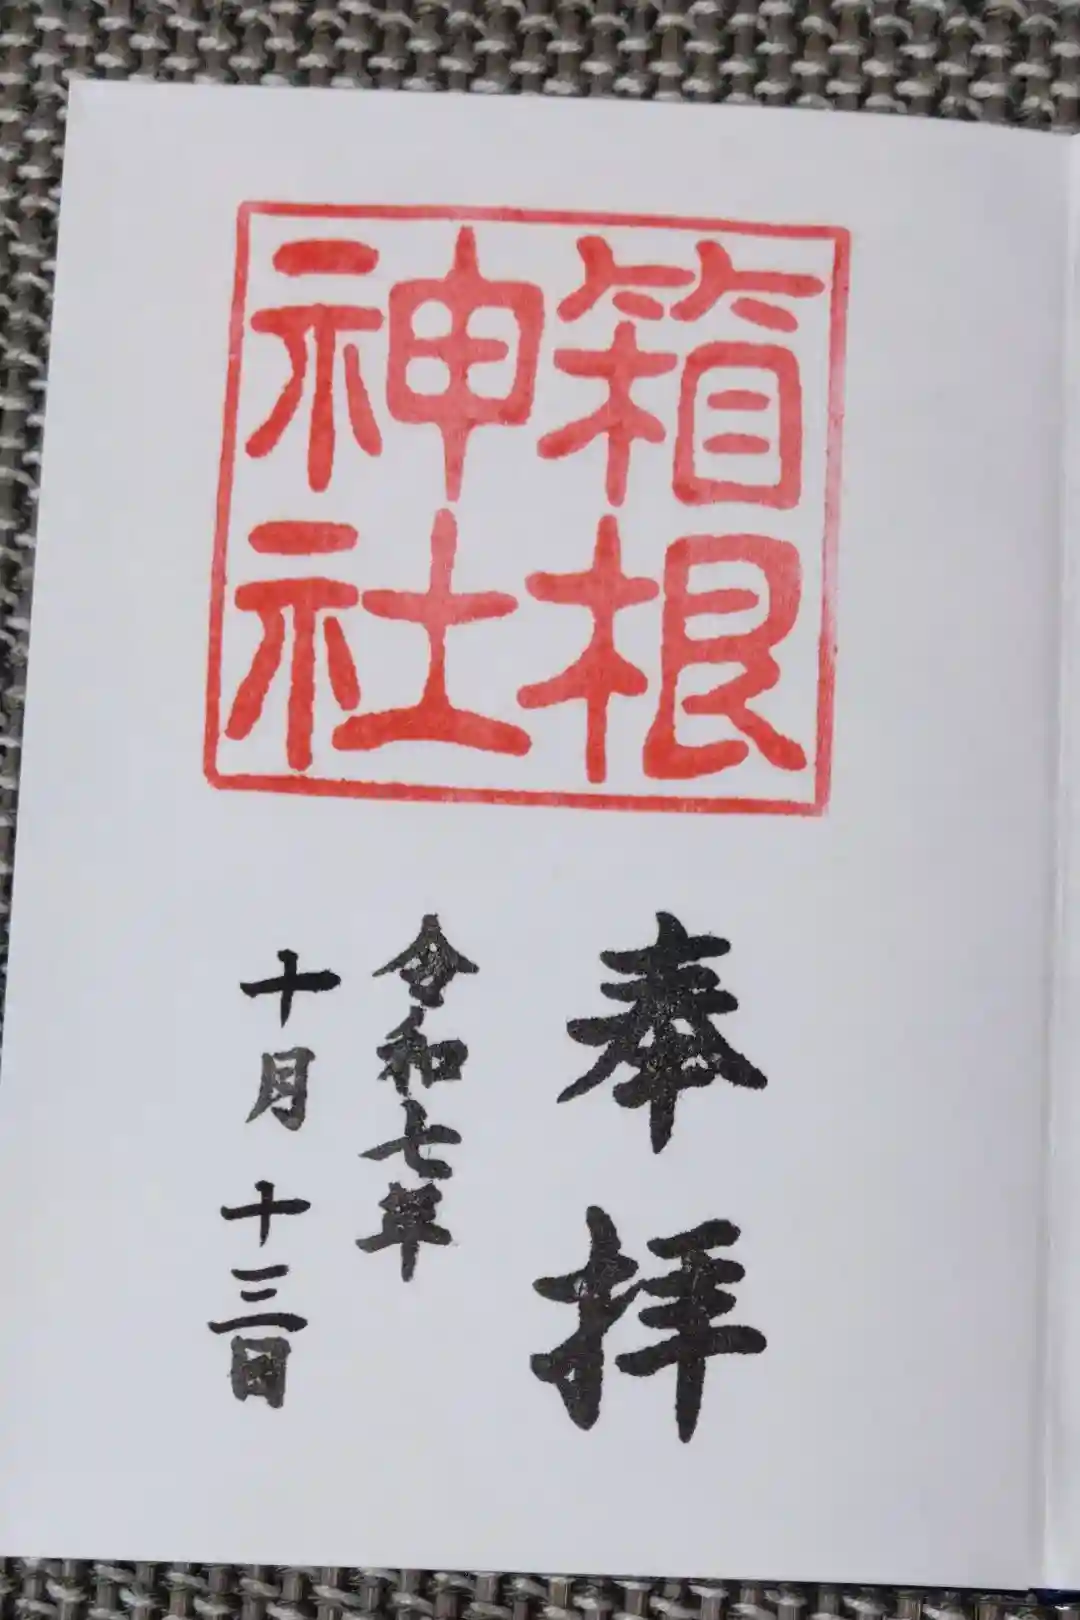 箱根
神社
奉拝
令和七年
十月十三日